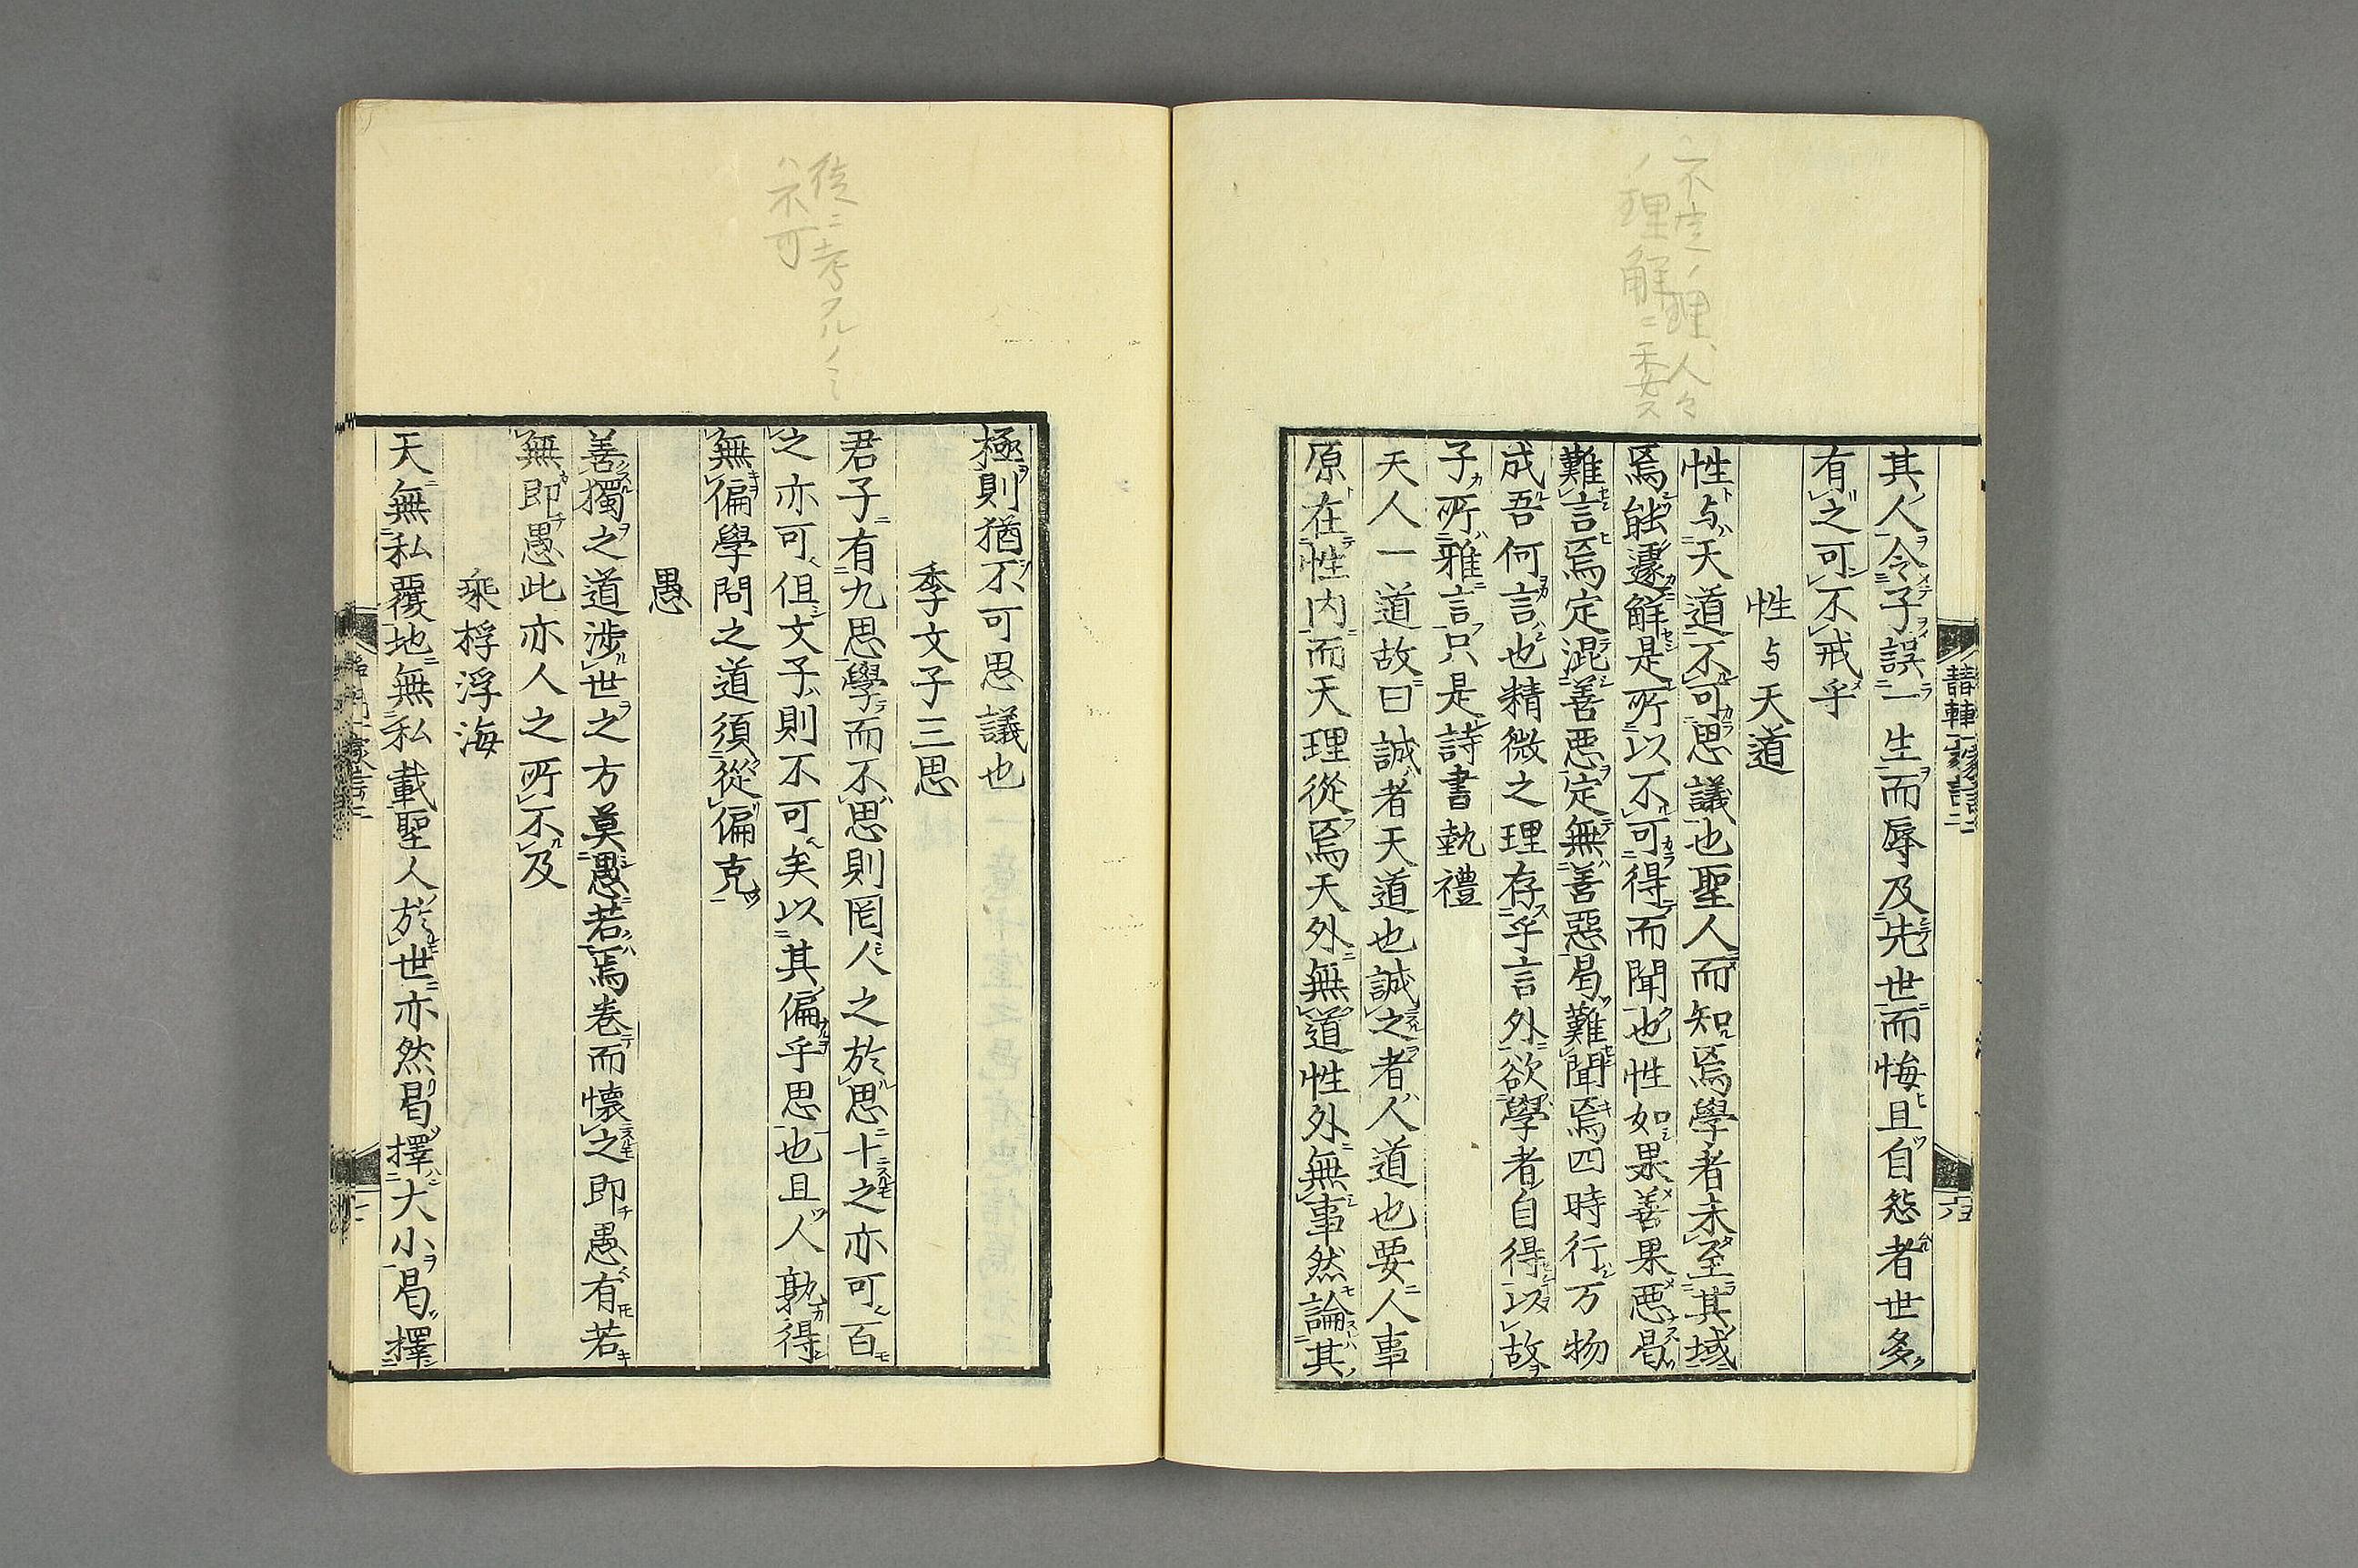 不定ノ理人々
ノ理解ニ委ス
其人令子誤一生而辱及先世而悔且自怨者世多
有之可不戒乎
性与天道
性与天道不可思議也聖人而知焉學者未至其域
焉能遽解是所以不可得而聞也性如果善果悪曷
難言焉定混善悪定無善惡曷難聞焉四時行万物
成吾何言也精微之理存乎言外欲學者自得以故
子所雅言只是詩書執禮
天人一道故曰誠者天道也誠之者人道也要人事
原在性内而天理從焉天外無道性外無事然論其
極則猶不可思議也
季文子三思
徒ニ考フルノミ
ハ不可
君子有九思學而不思則罔人之於思十之亦可百
之亦可但文子則不可矣以其偏乎思也且人孰得
無偏學問之道須從偏克
愚
善獨之道渉世之方莫愚若焉巻而懐之即愚有若
無即愚此亦人之所不及
乗桴浮海
天無私覆地無私載聖人於世亦然曷擇大小曷擇